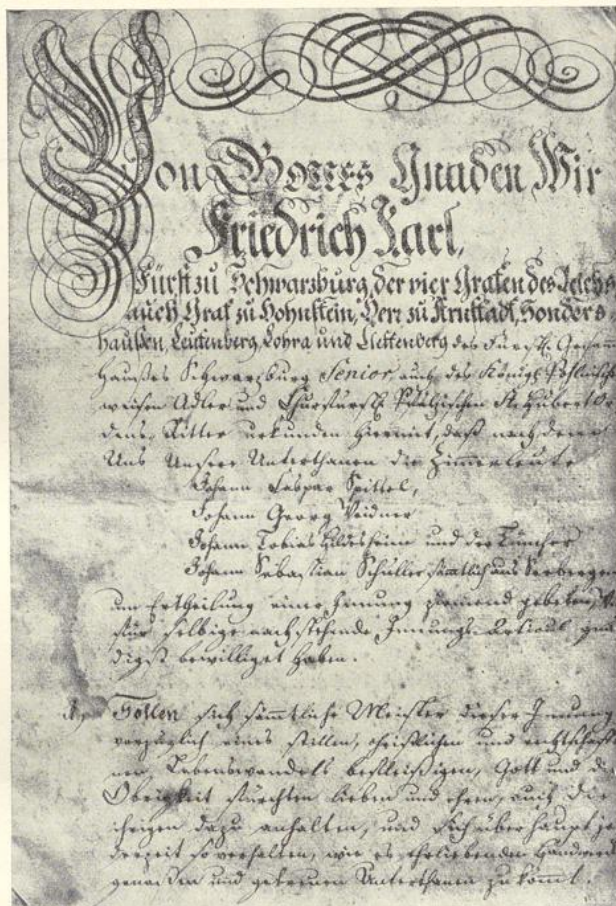 Von Gottes Gnaden Wir
Friedrich Karl,
Fürst zu Schwarzburg, der vier Grafen des Reichs
auch Graf zu Hohnstein, Herr zu Arnstadt, Sonders-
haußen, Leutenberg, Lohra und Klettenberg des Fürstl. Gesamm
Haußes Schwarzburg Senior, auch des Königl. Pohlnisch
weisen Adler und Churfürstl. Pfälzischen St. Huberti Or
dens, Ritter urkunden hiermit, daß nach deme
Uns Unsere Unterthanen die Zimmerleute
Johann Caspar Spittel,
Johann Georg Weidner
Johann Tobias Hildesheim und der Tüncher
Johann Sebastian Schüller, sämtlich aus Seebergen
um Ertheilung einer Innung geziemend gebeten,
für selbige nachstehende Innungs-Articul gnä
digst bewilliget haben.
Sollen sich sämmtliche Meister dieser Innung
vorzüglich eines stillen, christlichen und rechtschaffe
nen, Lebenswandels befleißigen, Gott und die
Obrigkeit fürchten lieben und ehren, auch die
ihrigen dazu anhalten, und sich überhaupt je
derzeit so verhalten, wie es ehrliebenden Handwercks
genossen und getreuen Unterthanen zukömt.